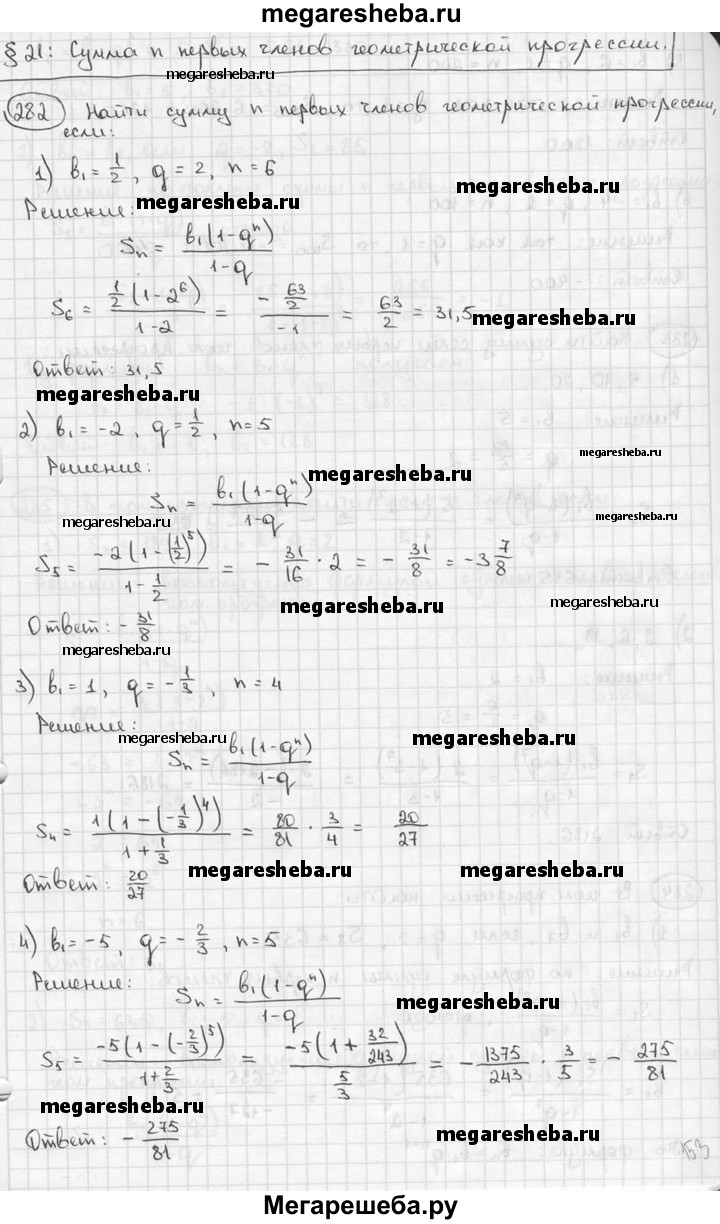 megaresheba.ru
§ 21: Сумма n первых членов геометрической прогрессии.
megaresheba.ru
282 Найти сумму n первых членов геометрической прогрессии,
если:
1) b₁ = 1/2, q = 2, n = 6
megaresheba.ru
Решение:
megaresheba.ru
Sₙ = b₁(1-qⁿ)/(1-q)
S₆ = 1/2(1-2⁶)/(1-2) = (-63/2)/(-1) = 63/2 = 31,5
megaresheba.ru
Ответ: 31,5
megaresheba.ru
2) b₁ = -2, q = 1/2, n = 5
megaresheba.ru
Решение:
megaresheba.ru
Sₙ = b₁(1-qⁿ)/(1-q)
megaresheba.ru
megaresheba.ru
S₅ = -2(1-(1/2)⁵)/(1-1/2) = -31/16 · 2 = -31/8 = -3 7/8
megaresheba.ru
megaresheba.ru
Ответ: -31/8
megaresheba.ru
3) b₁ = 1, q = -1/3, n = 4
Решение:
megaresheba.ru
megaresheba.ru
Sₙ = b₁(1-qⁿ)/(1-q)
S₄ = 1(1-(-1/3)⁴)/(1+1/3) = 80/81 · 3/4 = 20/27
megaresheba.ru
megaresheba.ru
Ответ: 20/27
4) b₁ = -5, q = -2/3, n = 5
Решение:
Sₙ = b₁(1-qⁿ)/(1-q)
megaresheba.ru
S₅ = -5(1-(-2/3)⁵)/(1+2/3) = -5(1+32/243)/(5/3) = -1375/243 · 3/5 = -275/81
megaresheba.ru
megaresheba.ru
Ответ: -275/81
153
Мегарешеба.ру